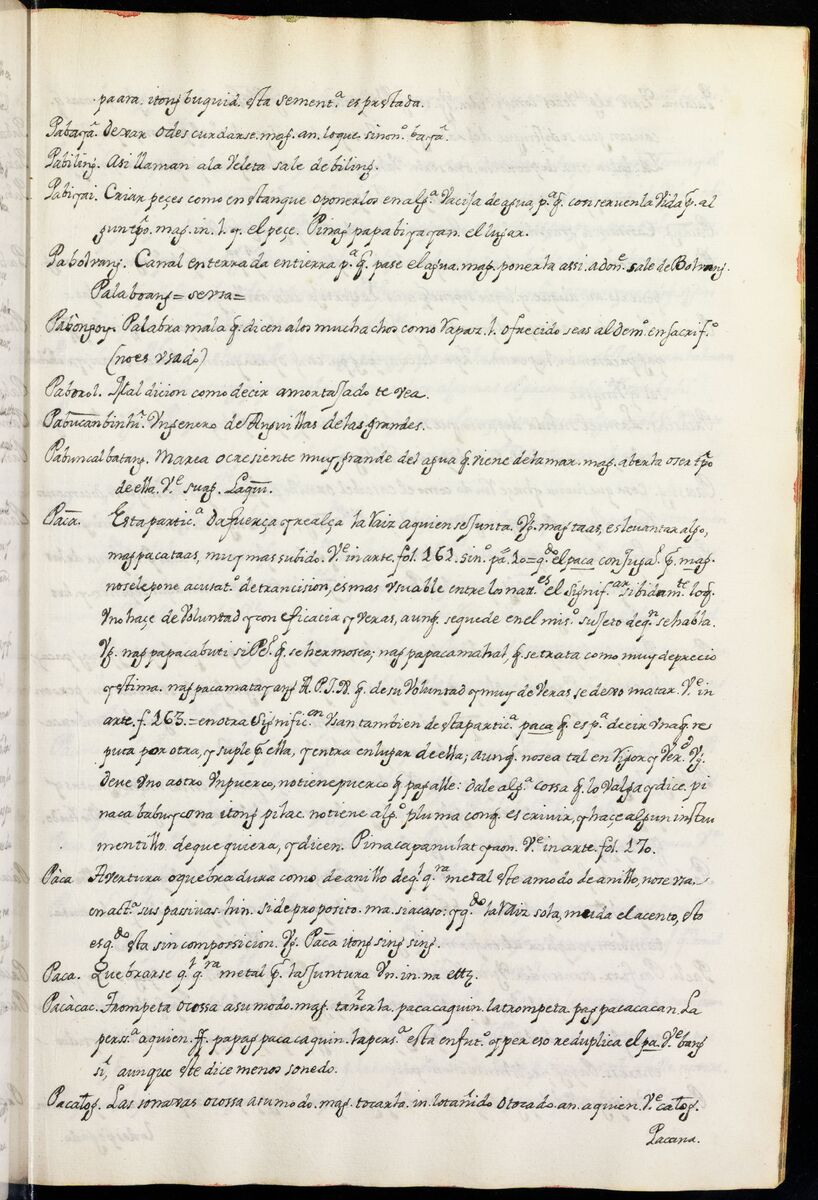 paara. itong buquid. esta sement.ª es prestada.
Pabayã. Dexar o descuydarse. mag. an. lo que. sinon.º bayã.
Pabiling. Asi llaman a la Veleta sale de biling.
Pabiyai. Criar peçes como en estanque o ponerlos en alg.ª Vacija de agua, p.ª q̃. conserven la Vida p̃. al
gun tpo. mag. in. l. y. el peçe. Pinag papabiyayan. el lugar.
Pabolvang. Canal enterrada en tierra p.ª q̃. pase el agua. mag. ponerla assi. adon.e sale de Bolvang.
Palaboang = se usa =
Pabongoyi Palabra mala q̃. dicen a los muchachos como rapaz. l. ofrecido seas al dem.º en sacrif.º
(no es usado)
Paborol. Maldicion como decir amortajado te vea.
Pabucanbinhi. Un genero de Anguillas de las grandes.
Pabuncalbatang. Marea o cresiente muy grande del agua q̃. viene de la mar. mag. aberla o ser tpo
de ella. V.e suag. Laqui.
Paca. Esta partic.ª da fuerça y realça la raiz a quien se junta. Vg. mag taas, es levantar algo,
mag paca taas, muy mas subido. V.e in arte. fol. 161. sin.º pa. 10 = q.do el paca conjuga.l p̃. mag.
no se le pone acusat.º de trancision, es mas usuable entre los nat.es el signif.ar sibidam.te lo q̃.
uno haçe de Voluntad y con eficacia y veras, aunq̃. se quede en el mis.º sujeto de q.n se habla.
Vg. nag papacabuti si P.l q̃. se hermosea; nag papacamahal, q̃. se trata como muy de precio
y estima. nag pacamatay ang A. P. J. N. q̃. de su Voluntad y muy de Veras se dexo matar. V.e in
arte. f. 163. = en otra significi.on usan tambien de esta partic.ª paca q̃. es p.ª decir una q̃. re
puta por otra, y suple p̃. ella, y entra en lugar de ella; aunq̃. no sea tal en Vigor y Ver.d Vg.
deve uno a otro un puerco, no tiene puerco q̃. pagalle: dale alg.ª cossa q̃. lo valga y dice, pi
naca babuy co na itong pilac. no tiene alg.º pluma con q̃. escrivir, y haçe algun instru
mentillo de que quiera, y dicen. Pinaca panulat cyaon. V.e in arte. fol. 170.
Pàca Avertura o quebradura como de anillo de q.l q.ra metal este a modo de anillo, no se usa.
en act.ª sus passivas. hin. si de proposito. ma. si acaso: y q.do la raiz sola, muda el acento, esto
es q.do esta sin composicion. Vg. Paca itong sing sing.
Paca. Quebrarse q.l q.ra metal p̃. la juntura Vn. in. na etc.
Pacàcac. Trompeta o cossa a su modo. mag. tañerla. pacacaquin. la trompeta. pag pacacacan. La
perss.ª a quien. ff. papag pacacaquin. la pers.ª esta en fut.º y per eso reduplica el pa. V.e bang
si, aunque este dice menos sonido.
Pacatog. Las sonaxas o cossa a su modo. mag. tocarla. in. lo tañido o tocado. an. a quien. V.e catog.
Pacana.